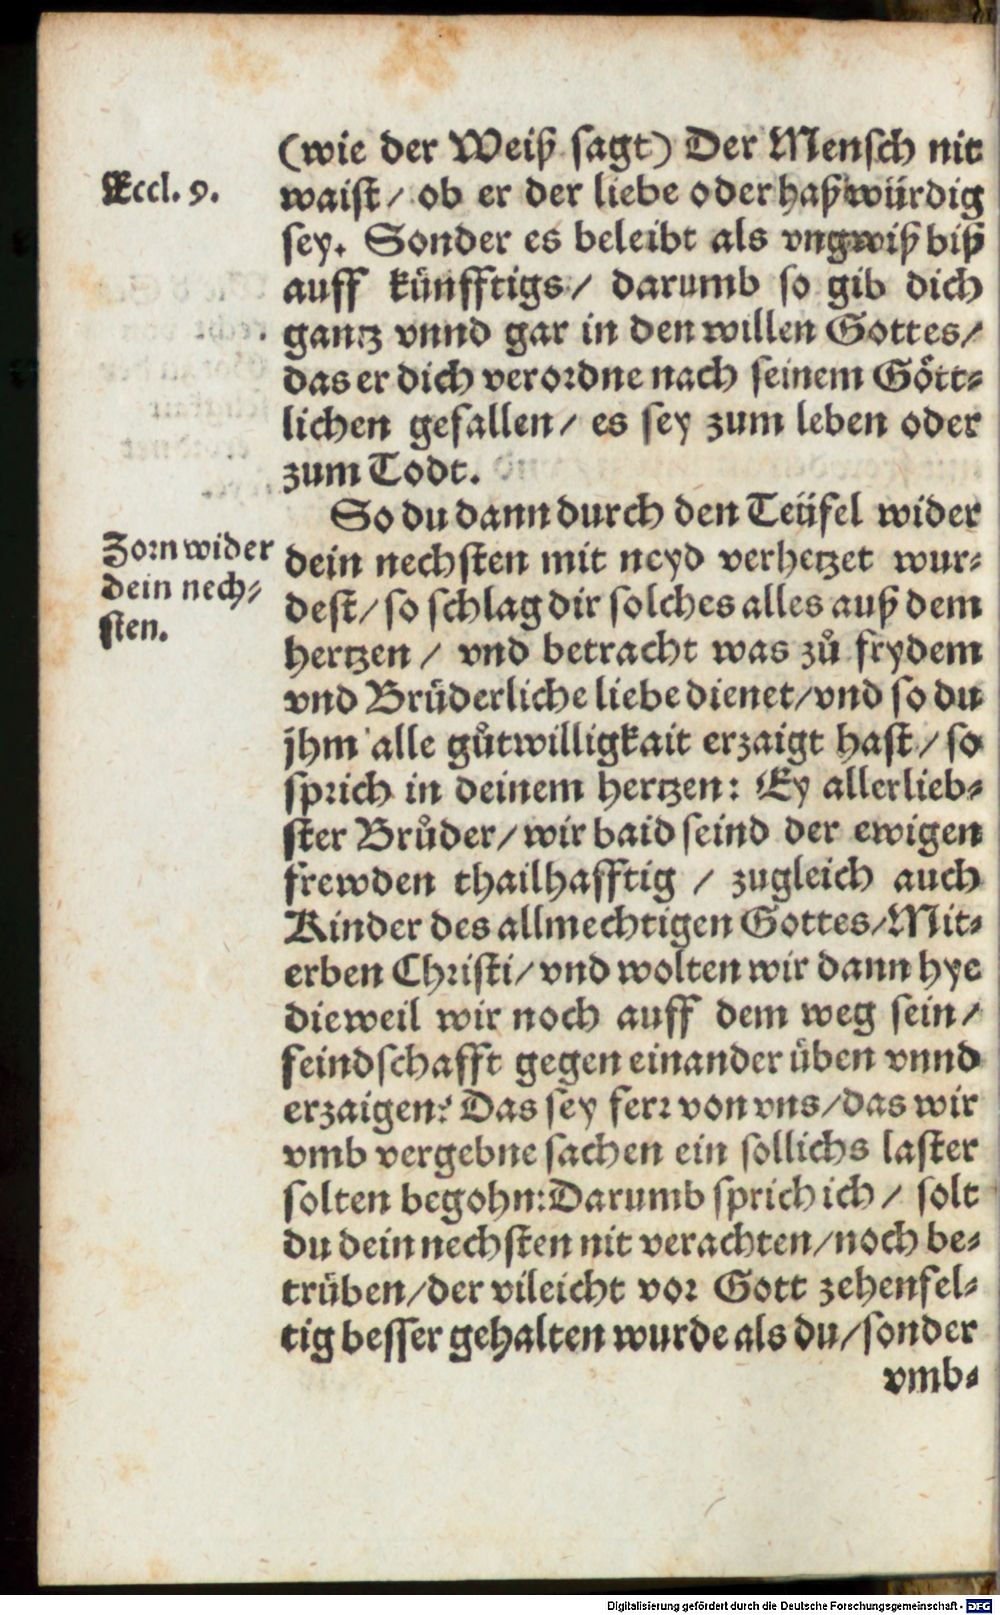 (wie der Weiß sagt) Der Mensch nit
Eccl. 9.
waist/ ob er der liebe oder haß würdig
sey. Sonder es beleibt als vngwiß biß
auff künfftigs/ darumb so gib dich
gantz vnnd gar in den willen Gottes/
das er dich verordne nach seinem Gött-
lichen gefallen/ es sey zum leben oder
zum Todt.
So du dann durch den Teüfel wider
Zorn wider
dein nech-
sten.
dein nechsten mit neyd verhetzet wur-
dest/ so schlag dir solches alles auß dem
hertzen/ vnd betracht was zů frydem
vnd Brüderliche liebe dienet/ vnd so du
jhm alle gůtwilligkait erzaigt hast/ so
sprich in deinem hertzen: Ey allerlieb-
ster Brůder/ wir baid seind der ewigen
frewden thailhafftig / zugleich auch
Kinder des allmechtigen Gottes/ Mit-
erben Christi/ vnd wolten wir dann hye
dieweil wir noch auff dem weg sein/
feindschafft gegen einander üben vnnd
erzaigen? Das sey ferr von vns/ das wir
vmb vergebne sachen ein sollichs laster
solten begohn: Darumb sprich ich/ solt
du dein nechsten nit verachten/ noch be-
trüben/ der vileicht vor Gott zehenfel-
tig besser gehalten wurde als du/ sonder
vmb-
Digitalisierung gefördert durch die Deutsche Forschungsgemeinschaft - DFG